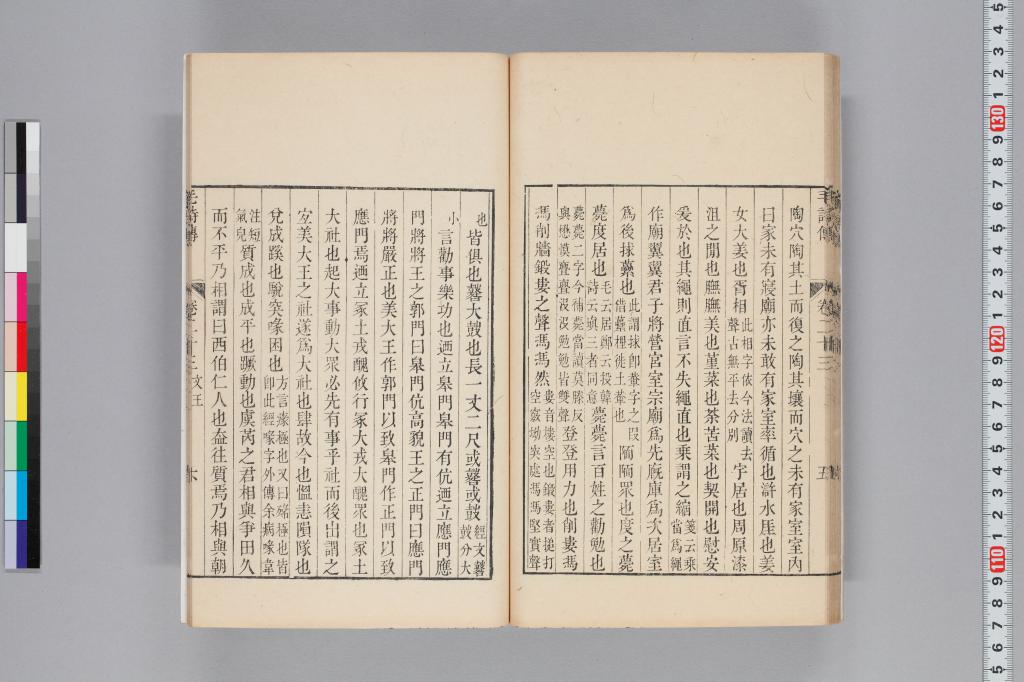 陶穴陶其土而復之陶其壤而穴之未有家室室內
曰家未有寢廟亦未敢有家室率循也滸水厓也姜
女大姜也胥相此相字依今法讀去聲古無平去分別宇居也周原漆
沮之閒也膴膴美也堇菜也荼苦菜也契開也慰安
爰於也其繩則直言不失繩直也乘謂之縮箋云乘當爲繩
作廟翼翼君子將營宮室宗廟爲先廄庫爲次居室
爲後捄虆也此謂捄卽虆字之叚借虆梩徙土虆也陾陾眾也度之薨
薨度居也毛云居鄭云投韓詩云塡三者同意薨薨言百姓之勸勉也
薨薨二字今補薨當讀莫滕反與懋漠亹亹沒沒勉勉皆雙聲登登用力也削婁馮
馮削牆鍛婁之聲馮馮然婁音樓空也鍛婁者搥打空竅坳突處馮馮堅實聲
也皆俱也鼛大鼓也長一丈二尺或鼛或鼓經文鼛鼓分大
小言勸事樂功也迺立皋門皋門有伉迺立應門應
門將將王之郭門曰皋門伉高貌王之正門曰應門
將將嚴正也美大王作郭門以致皋門作正門以致
應門焉迺立冢土戎醜攸行冢大戎大醜眾也冢土
大社也起大事動大眾必先有事乎社而後出謂之
宜美大王之社遂爲大社也肆故今也慍恚隕隊也
兌成蹊也駾突喙困也方言瘃極也又曰㱡極也皆卽此經喙字外傳余病喙韋
注短氣皃質成也成平也蹶動也虞芮之君相與爭田久
而不平乃相謂曰西伯仁人也盍往質焉乃相與朝
毛詩傳
卷二十三
五
文王